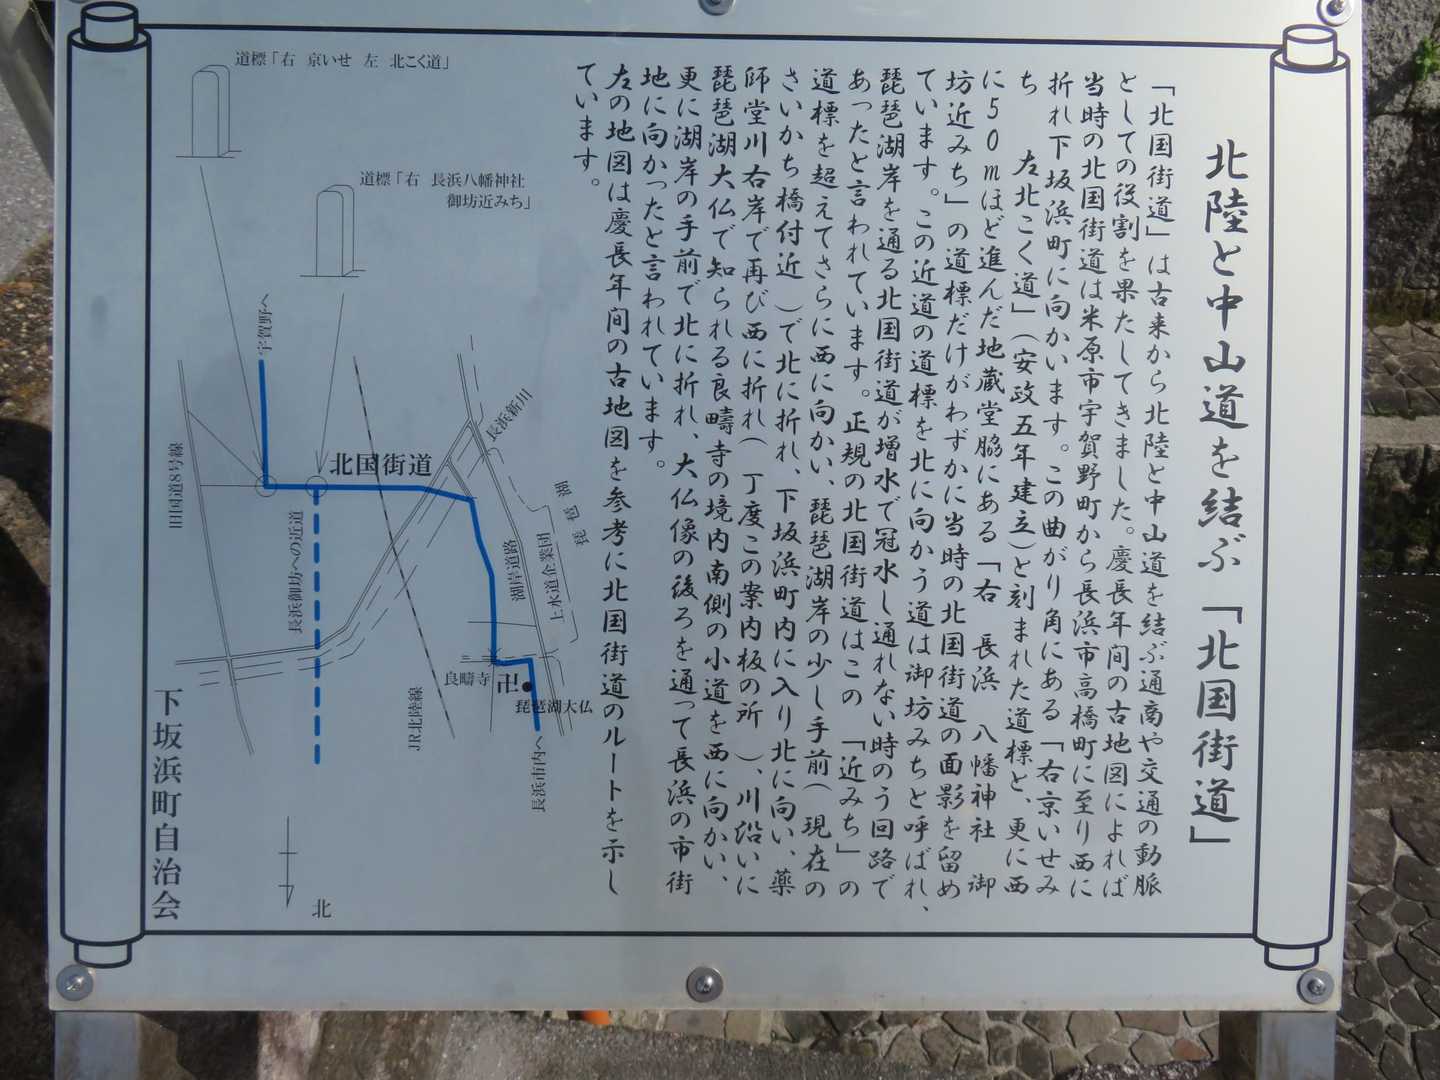 北陸と中山道を結ぶ「北国街道」
「北国街道」は古来から北陸と中山道を結ぶ通商や交通の動脈
としての役割を果たしてきました。慶長年間の古地図によれば
当時の北国街道は米原市宇賀野町から長浜市高橋町に至り西に
折れ下坂浜町に向かいます。この曲がり角にある「右京いせみ
ち　　左北こく道」(安政五年建立)と刻まれた道標と、更に西
に50mほど進んだ地蔵堂脇にある「右　長浜　八幡神社　御
坊近みち」の道標だけがわずかに当時の北国街道の面影を留め
ています。この近道の道標を北に向かう道は御坊みちと呼ばれ、
琵琶湖岸を通る北国街道が増水で冠水し通れない時のう回路で
あったと言われています。正規の北国街道はこの「近みち」の
道標を超えてさらに西に向かい、琵琶湖岸の少し手前(現在の
さいかち橋付近　)で北に折れ、下坂浜町内に入り北に向い、薬
師堂川右岸で再び西に折れ(　丁度この案内板の所　)、川沿いに
琵琶湖大仏で知られる良疇寺の境内南側の小道を西に向かい、
更に湖岸の手前で北に折れ、大仏像の後ろを通って長浜の市街
地に向かったと言われています。
左の地図は慶長年間の古地図を参考に北国街道のルートを示し
ています。
道標「右　京いせ　左　北こく道」
道標「右　長浜八幡神社
御坊近みち」
宇賀野へ
北国街道
長浜新川
旧国道8号線
長浜御坊への近道
湖岸道路
上水道企業団
琵琶湖
良疇寺
卍
琵琶湖大仏
JR北陸線
長浜市内へ
北
下坂浜町自治会